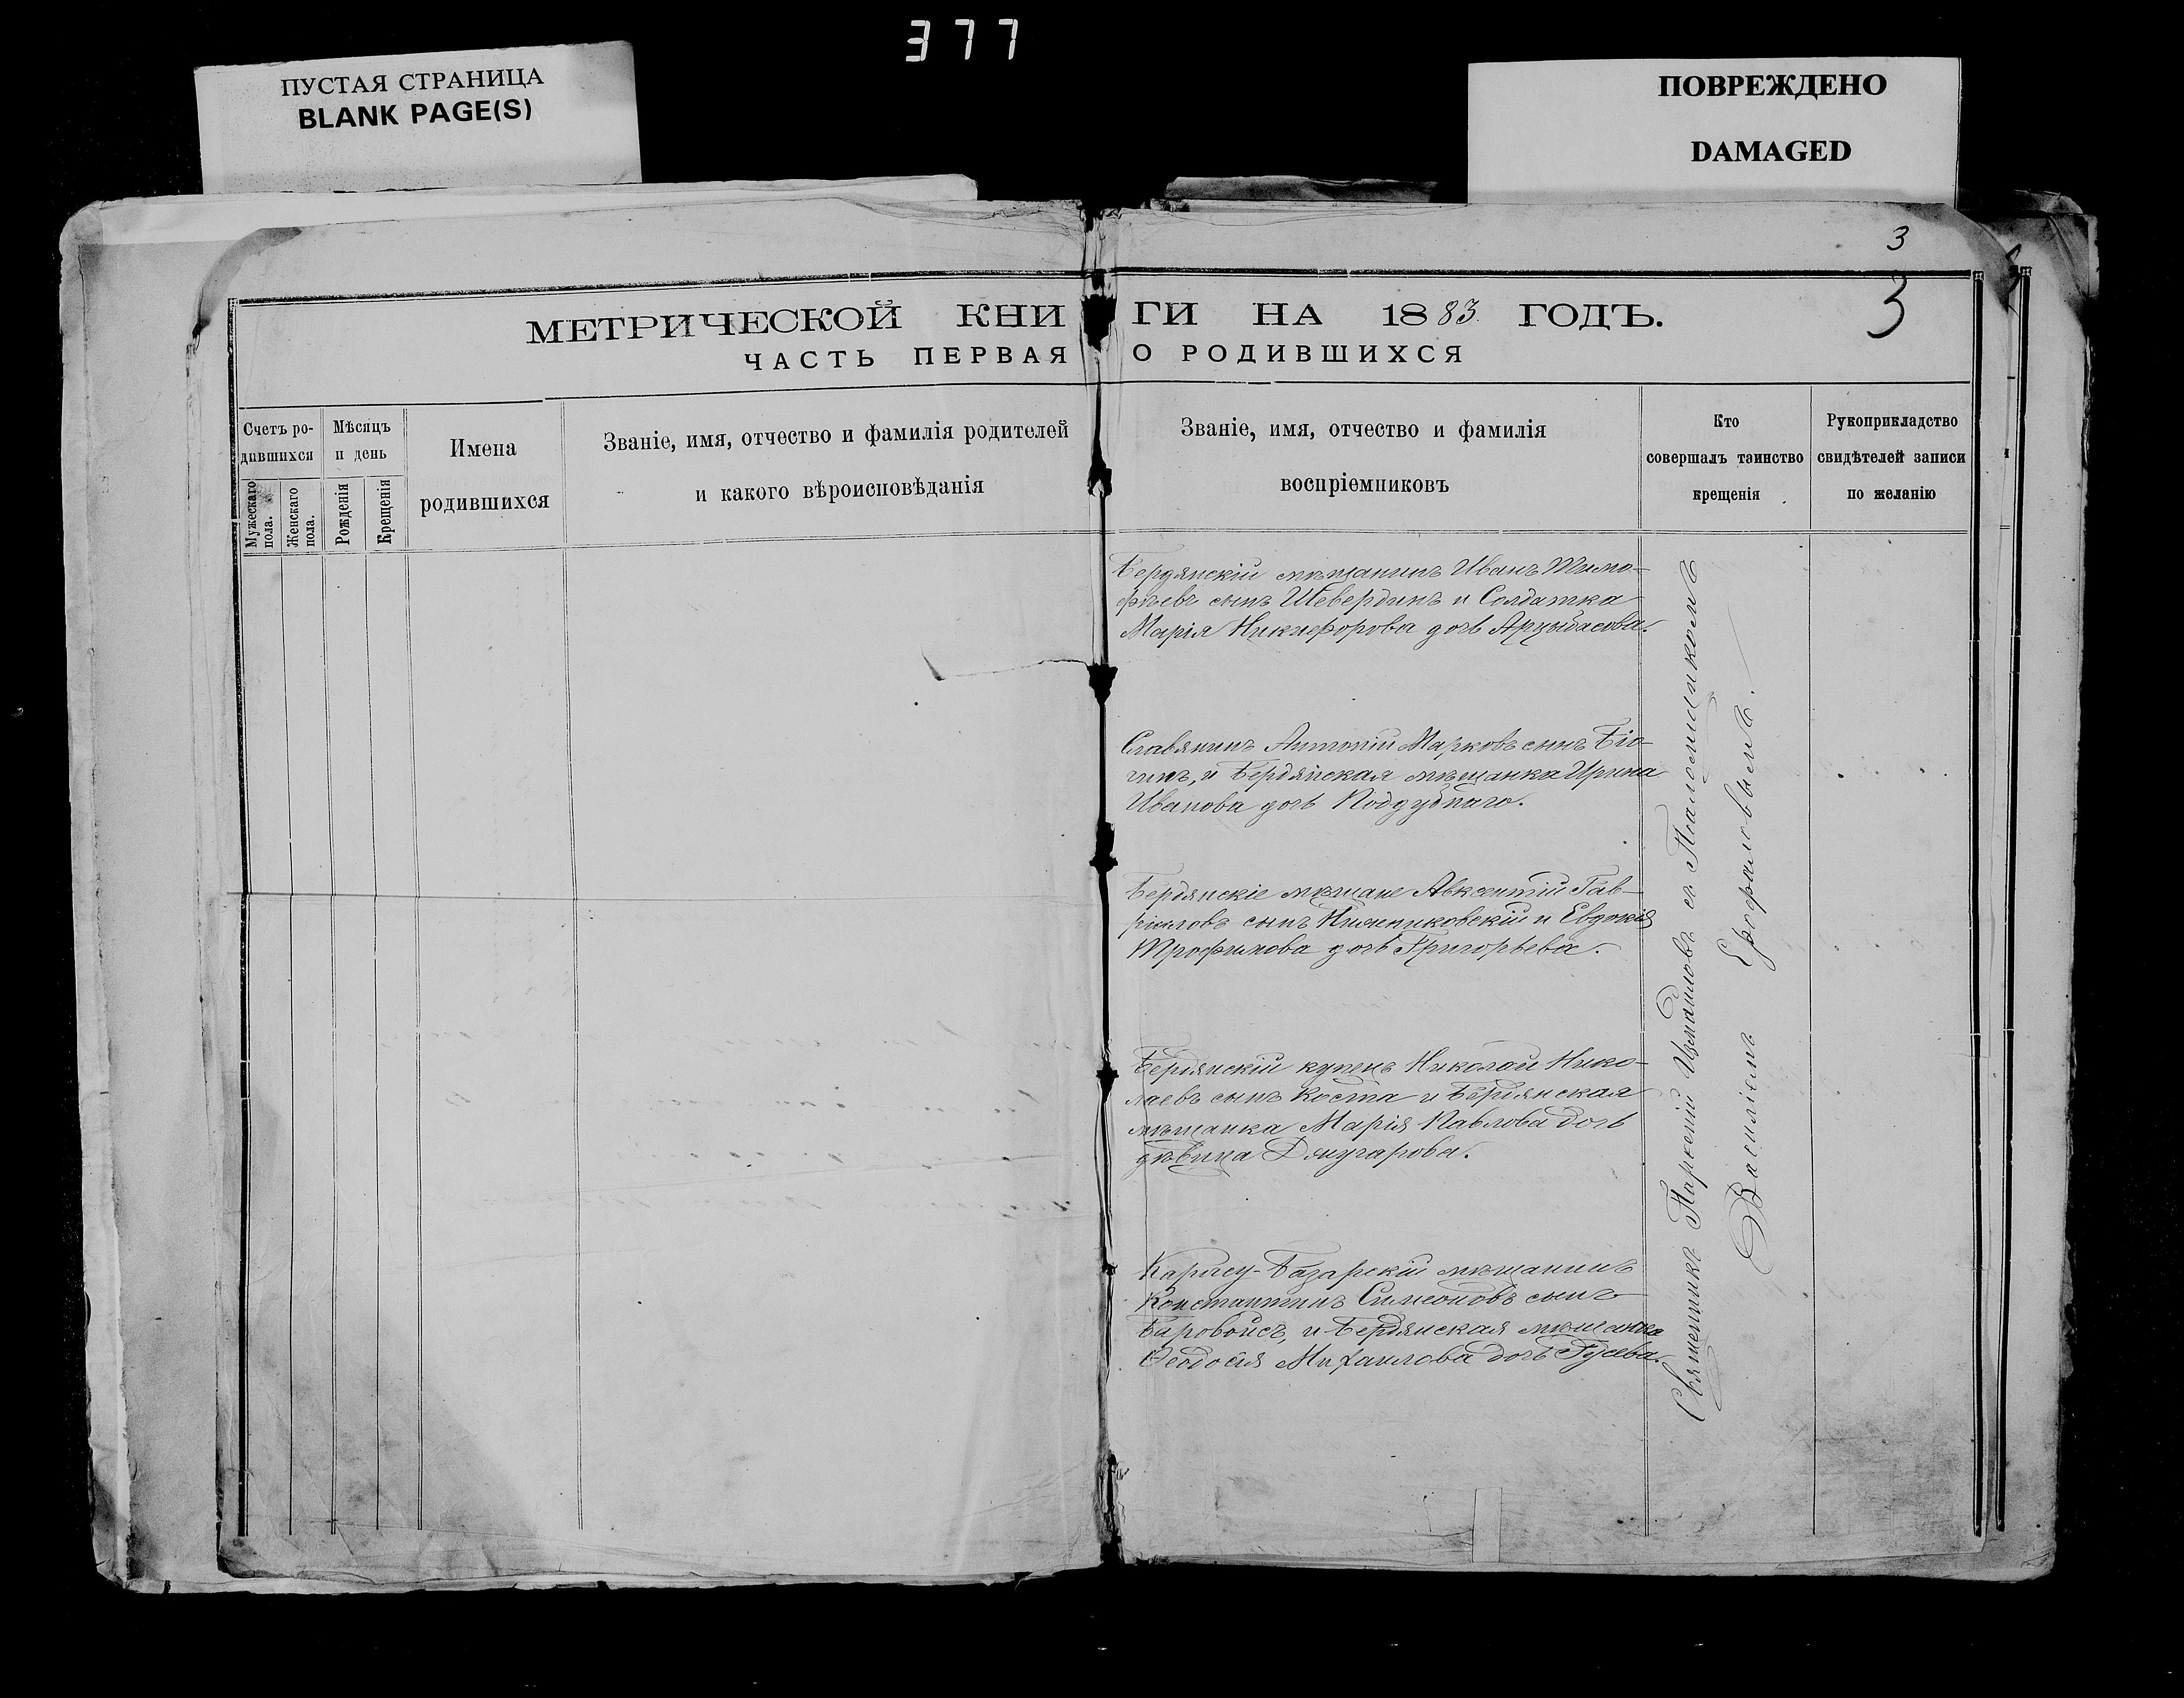 377
ПУСТАЯ СТРАНИЦА
BLANK PAGE(S)
ПОВРЕЖДЕНО
DAMAGED
3
3
МЕТРИЧЕСКОЙ КНИГИ НА 1883 ГОДЪ.
ЧАСТЬ ПЕРВАЯ О РОДИВШИХСЯ
Счетъ ро-
дившихся
Мужескаго
пола.
Женскаго
пола.
Мѣсяцъ
и день
Рожденія
Крещенія
Имена
родившихся
Званіе, имя, отчество и фамилія родителей
и какого вѣроисповѣданія
Званіе, имя, отчество и фамилія
воспріемниковъ
Кто
совершалъ таинство
крещенія
Рукоприкладство
свидѣтелей записи
по желанію
Бердянскій мѣщанинъ Иванъ Тимо-
фѣевъ сынъ Шевердинъ и Солдатка
Марія Никифорова дочь Арцыбасова.
Славянинъ Антоній Марковъ сынъ Біо-
чинъ, и Бердянская мѣщанка Ирина
Иванова дочь Поддубнаго.
Бердянскіе мѣщане Авксентій Гав-
ріиловъ сынъ Нижниковскій и Евдокія
Трофимова дочь Григорьева.
Бердянскій купецъ Николай Нико-
лаевъ сынъ Коста и Бердянская
мѣщанка Марія Павлова дочь
дѣвица Дянчарова.
Карасу-Базарскій мѣщанинъ
Константинъ Симеоновъ сынъ
и Бердянская мѣщанка
Ѳеодосія Михаилова дочь Гусева.
Священникъ Парѳеній Измаиловъ съ Псаломщикомъ
Василіемъ Ерофаловымъ.